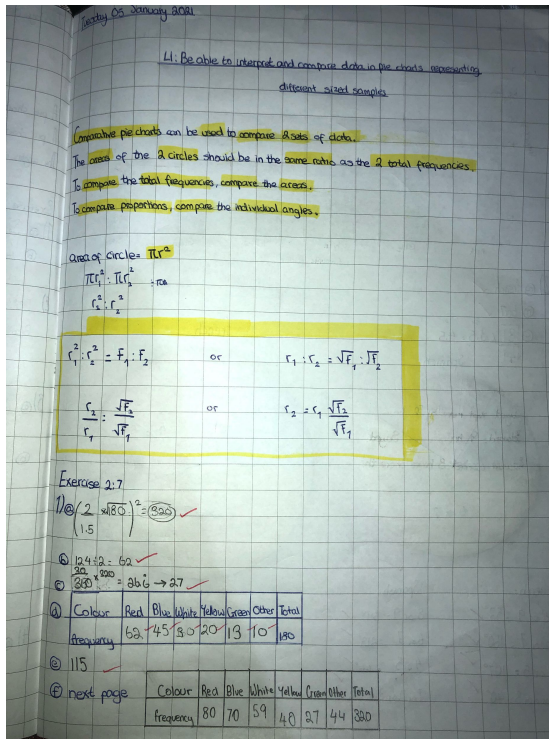 Tuesday 05 January 2021
LI: Be able to interpret and compare data in pie charts representing
different sized samples
Comparative pie charts can be used to compare 2 sets of data.
The areas of the 2 circles should be in the same ratio as the 2 total frequencies.
To compare the total frequencies, compare the areas.
To compare proportions, compare the individual angles.
area of circle = πr²
πr₁² : πr₂²
r₁² : r₂²
r₁² : r₂² = f₁ : f₂ or r₁ : r₂ = √f₁ : √f₂
r₂/r₁ = √f₂/√f₁ or r₂ = r₁ √f₂/√f₁
Exercise 2:7
1) a (2/1.5 × √180)² = 320
b 124 ÷ 2 = 62
c 30/360 × 320 = 26.6 → 27
d Colour Red Blue White Yellow Green Other Total
frequency 62 45 30 20 13 10 180
e 115
f next page Colour Red Blue White Yellow Green Other Total
frequency 80 70 59 40 27 44 320